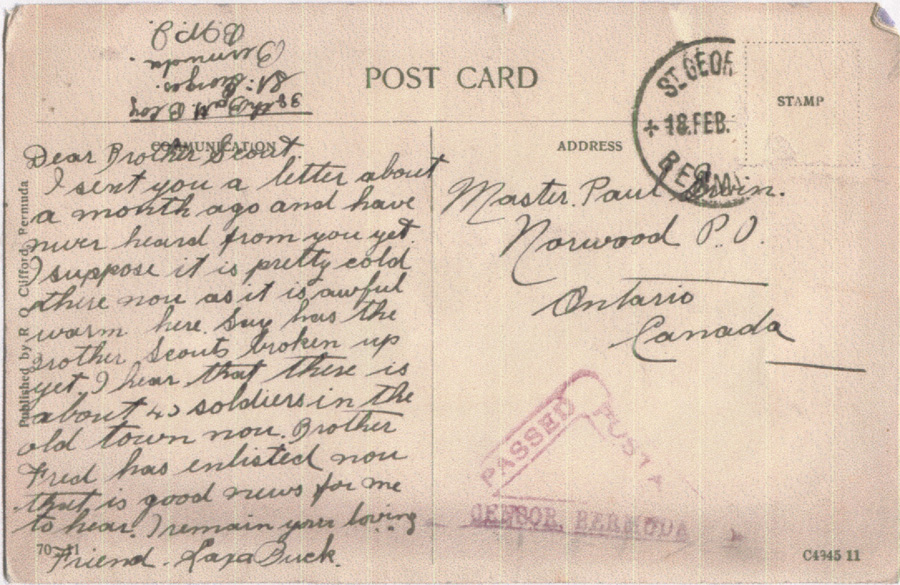 38th Batt B Coy
St. Georges.
Bermuda.
B.W.I
POST CARD
STAMP
ST GEOR
18.FEB.
BERMU
COMMUNICATION
ADDRESS
Dear Brother Scout.
I sent you a letter about
a month ago and have
never heard from you yet.
I suppose it is pretty cold
there now as it is awful
warm here. Say has the
Brother Scouts broken up
yet, I hear that there is
about 40 soldiers in the
old town now. Brother
Fred has enlisted now
that is good news for me
to hear. I remain your loving
Friend. Buck.
Master. Paul
Norwood P.O.
Ontario
Canada
PASSED
POSTA
CENSOR, BERMUDA
Published by R O Clifford, Bermuda
C4945 11